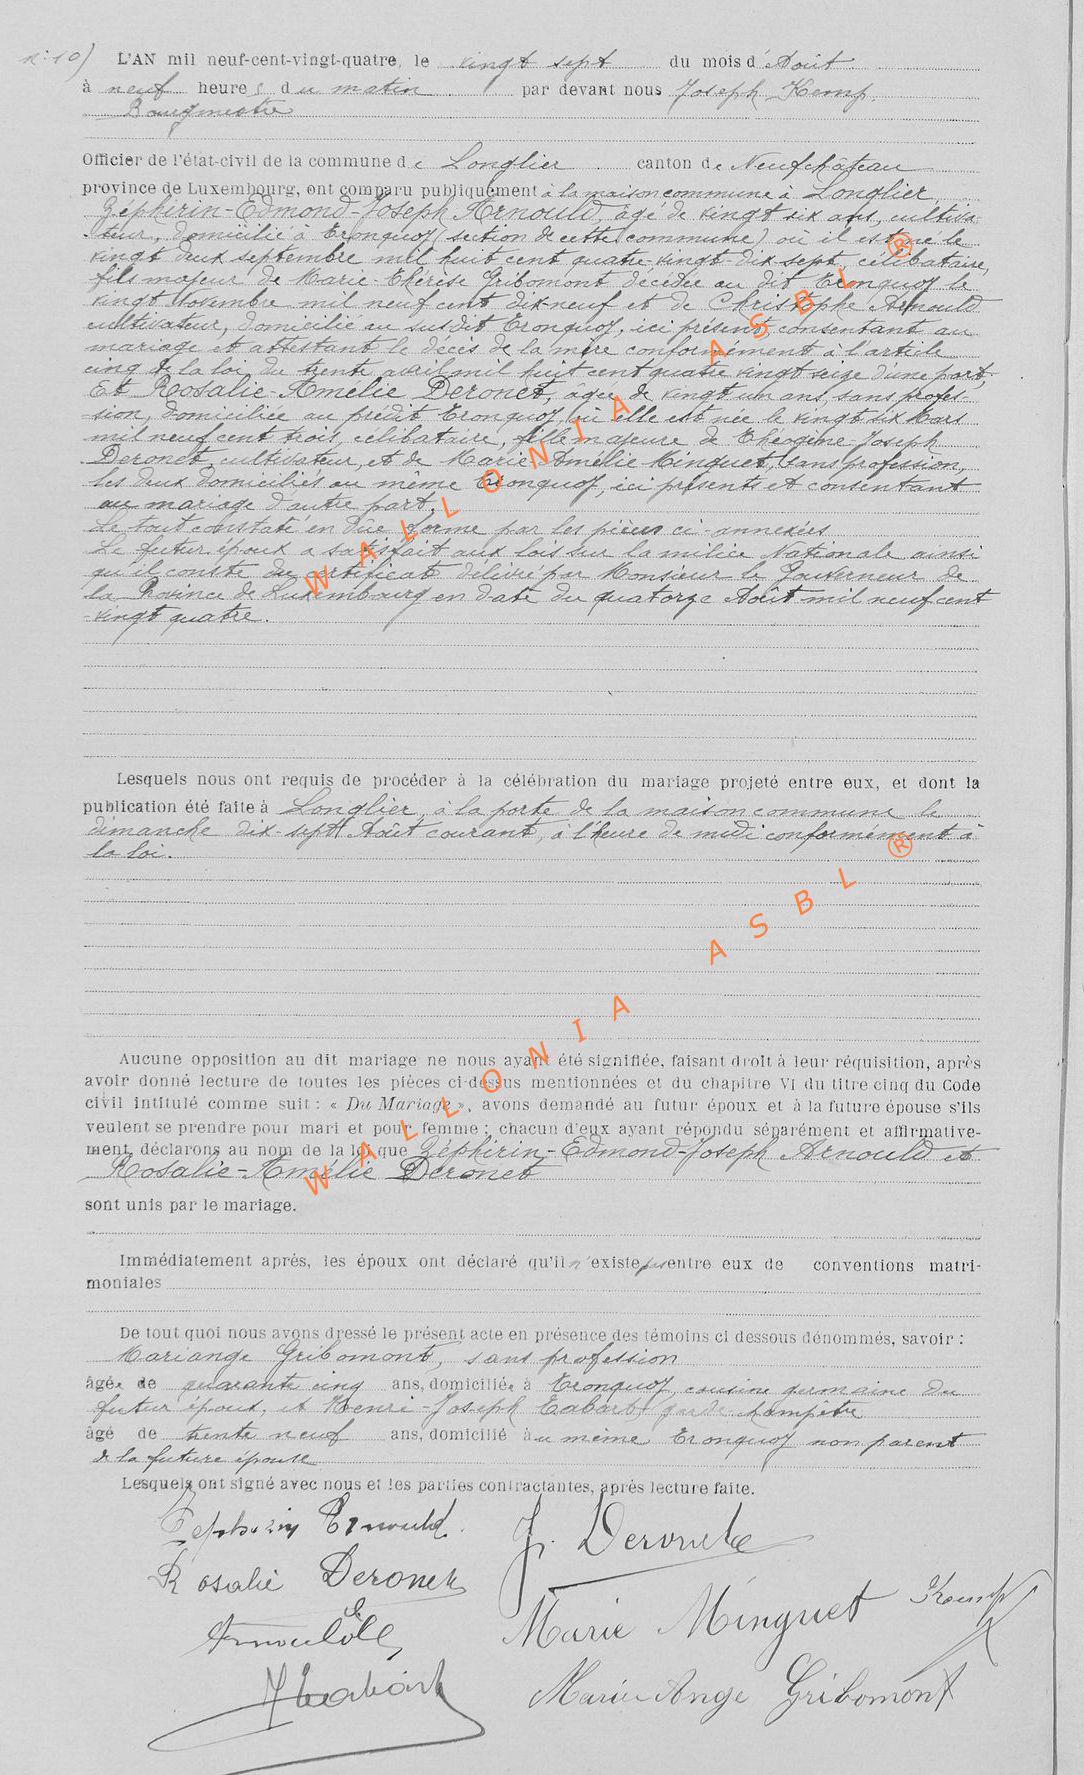 n° 10)
L'AN mil neuf-cent-vingt-quatre, le vingt sept du mois d'Août
à neuf heures du matin par devant nous Joseph Kemp,
Bourgmestre
Officier de l'état-civil de la commune de Longlier canton de Neufchâteau
province de Luxembourg, ont comparu publiquement à la maison commune à Longlier,
Zéphirin-Edmond-Joseph Arnould, âgé de vingt six ans, cultiva-
teur, domicilié à Tronquoy (section de cette commune) où il est né le
vingt deux septembre mil huit cent quatre-vingt-dix-sept, célibataire,
fils majeur de Marie-Thérèse Gribomont décédée au dit Tronquoy le
vingt novembre mil neuf cent dix-neuf et de Christophe Arnould
cultivateur, domicilié au susdit Tronquoy, ici présent, consentant au
mariage et attestant le décès de la mère conformément à l'article
cinq de la loi du trente avril mil huit cent quatre vingt seize d'une part,
Et Rosalie-Amélie Deronet, âgée de vingt un ans, sans profes-
sion, domiciliée au prédit Tronquoy, où elle est née le vingt six Mars
mil neuf cent trois, célibataire, fille majeure de Théogène-Joseph
Deronet, cultivateur, et de Marie-Amélie Minguet, sans profession,
les deux domiciliés au même Tronquoy, ici présents et consentant
au mariage d'autre part.
Le tout constaté en dûe forme par les pièces ci-annexées
Le futur époux a satisfait aux lois sur la milice Nationale ainsi
qu'il conste du certificat délivré par Monsieur le Gouverneur de
la Province de Luxembourg en date du quatorze Août mil neuf cent
vingt quatre.
Lesquels nous ont requis de procéder à la célébration du mariage projeté entre eux, et dont la
publication été faite à Longlier, à la porte de la maison commune le
dimanche dix-sept Août courant, à l'heure de midi conformément à
la loi.
Aucune opposition au dit mariage ne nous ayant été signifiée, faisant droit à leur réquisition, après
avoir donné lecture de toutes les pièces ci-dessus mentionnées et du chapitre VI du titre cinq du Code
civil intitulé comme suit : « Du Mariage », avons demandé au futur époux et à la future épouse s'ils
veulent se prendre pour mari et pour femme ; chacun d'eux ayant répondu séparément et affirmative-
ment, déclarons au nom de la loi que Zéphirin-Edmond-Joseph Arnould et
Rosalie-Amélie Deronet
sont unis par le mariage.
Immédiatement après, les époux ont déclaré qu'il n'existe pas entre eux de conventions matri-
moniales
De tout quoi nous avons dressé le présent acte en présence des témoins ci dessous dénommés, savoir :
Mariange Gribomont, sans profession
âgée de quarante cinq ans, domiciliée à Tronquoy, cousine germaine du
futur époux, et Henri-Joseph Tabart, garde champêtre
âgé de trente neuf ans, domicilié au même Tronquoy non parent
de la future épouse
Lesquels ont signé avec nous et les parties contractantes, après lecture faite.
Zephirin Arnould. J. Deronet
Rosalie Deronet
Marie Minguet Kemp
Arnould C.
HTabart
Marie Ange Gribomont
WALLONIA ASBL ®
WALLONIA ASBL ®